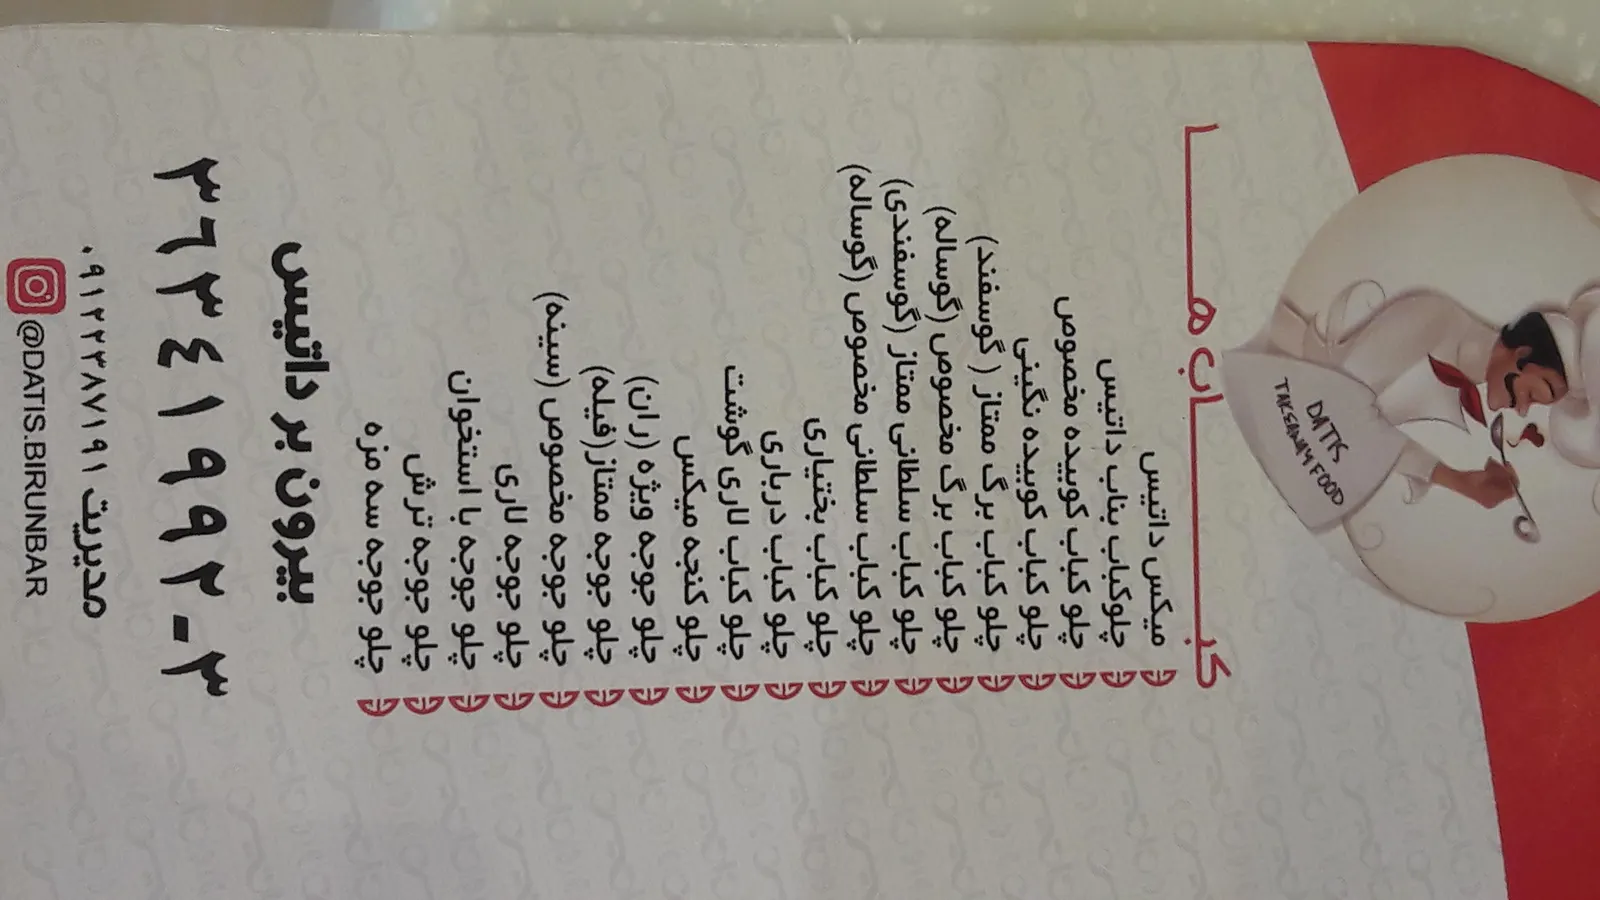 DATIS
TAKEAWAY FOOD
کبـــاب هـــا
میکس داتیس
چلوکباب بناب داتیس
چلو کباب کوبیده مخصوص
چلو کباب کوبیده نگینی
چلو کباب برگ ممتاز ( گوسفند)
چلو کباب برگ مخصوص (گوساله)
چلو کباب سلطانی ممتاز (گوسفندی)
چلو کباب سلطانی مخصوص (گوساله)
چلو کباب بختیاری
چلو کباب درباری
چلو کباب لاری گوشت
چلو کنجه میکس
چلو جوجه ویژه (ران)
چلو جوجه ممتاز(فیله)
چلو جوجه مخصوص (سینه)
چلو جوجه لاری
چلو جوجه با استخوان
چلو جوجه ترش
چلو جوجه سه مزه
بیرون بر داتیس
۳۶۳۴۱۹۹۲-۳
مدیریت ۰۹۱۲۲۳۸۷۱۹۱
@DATIS.BIRUNBAR